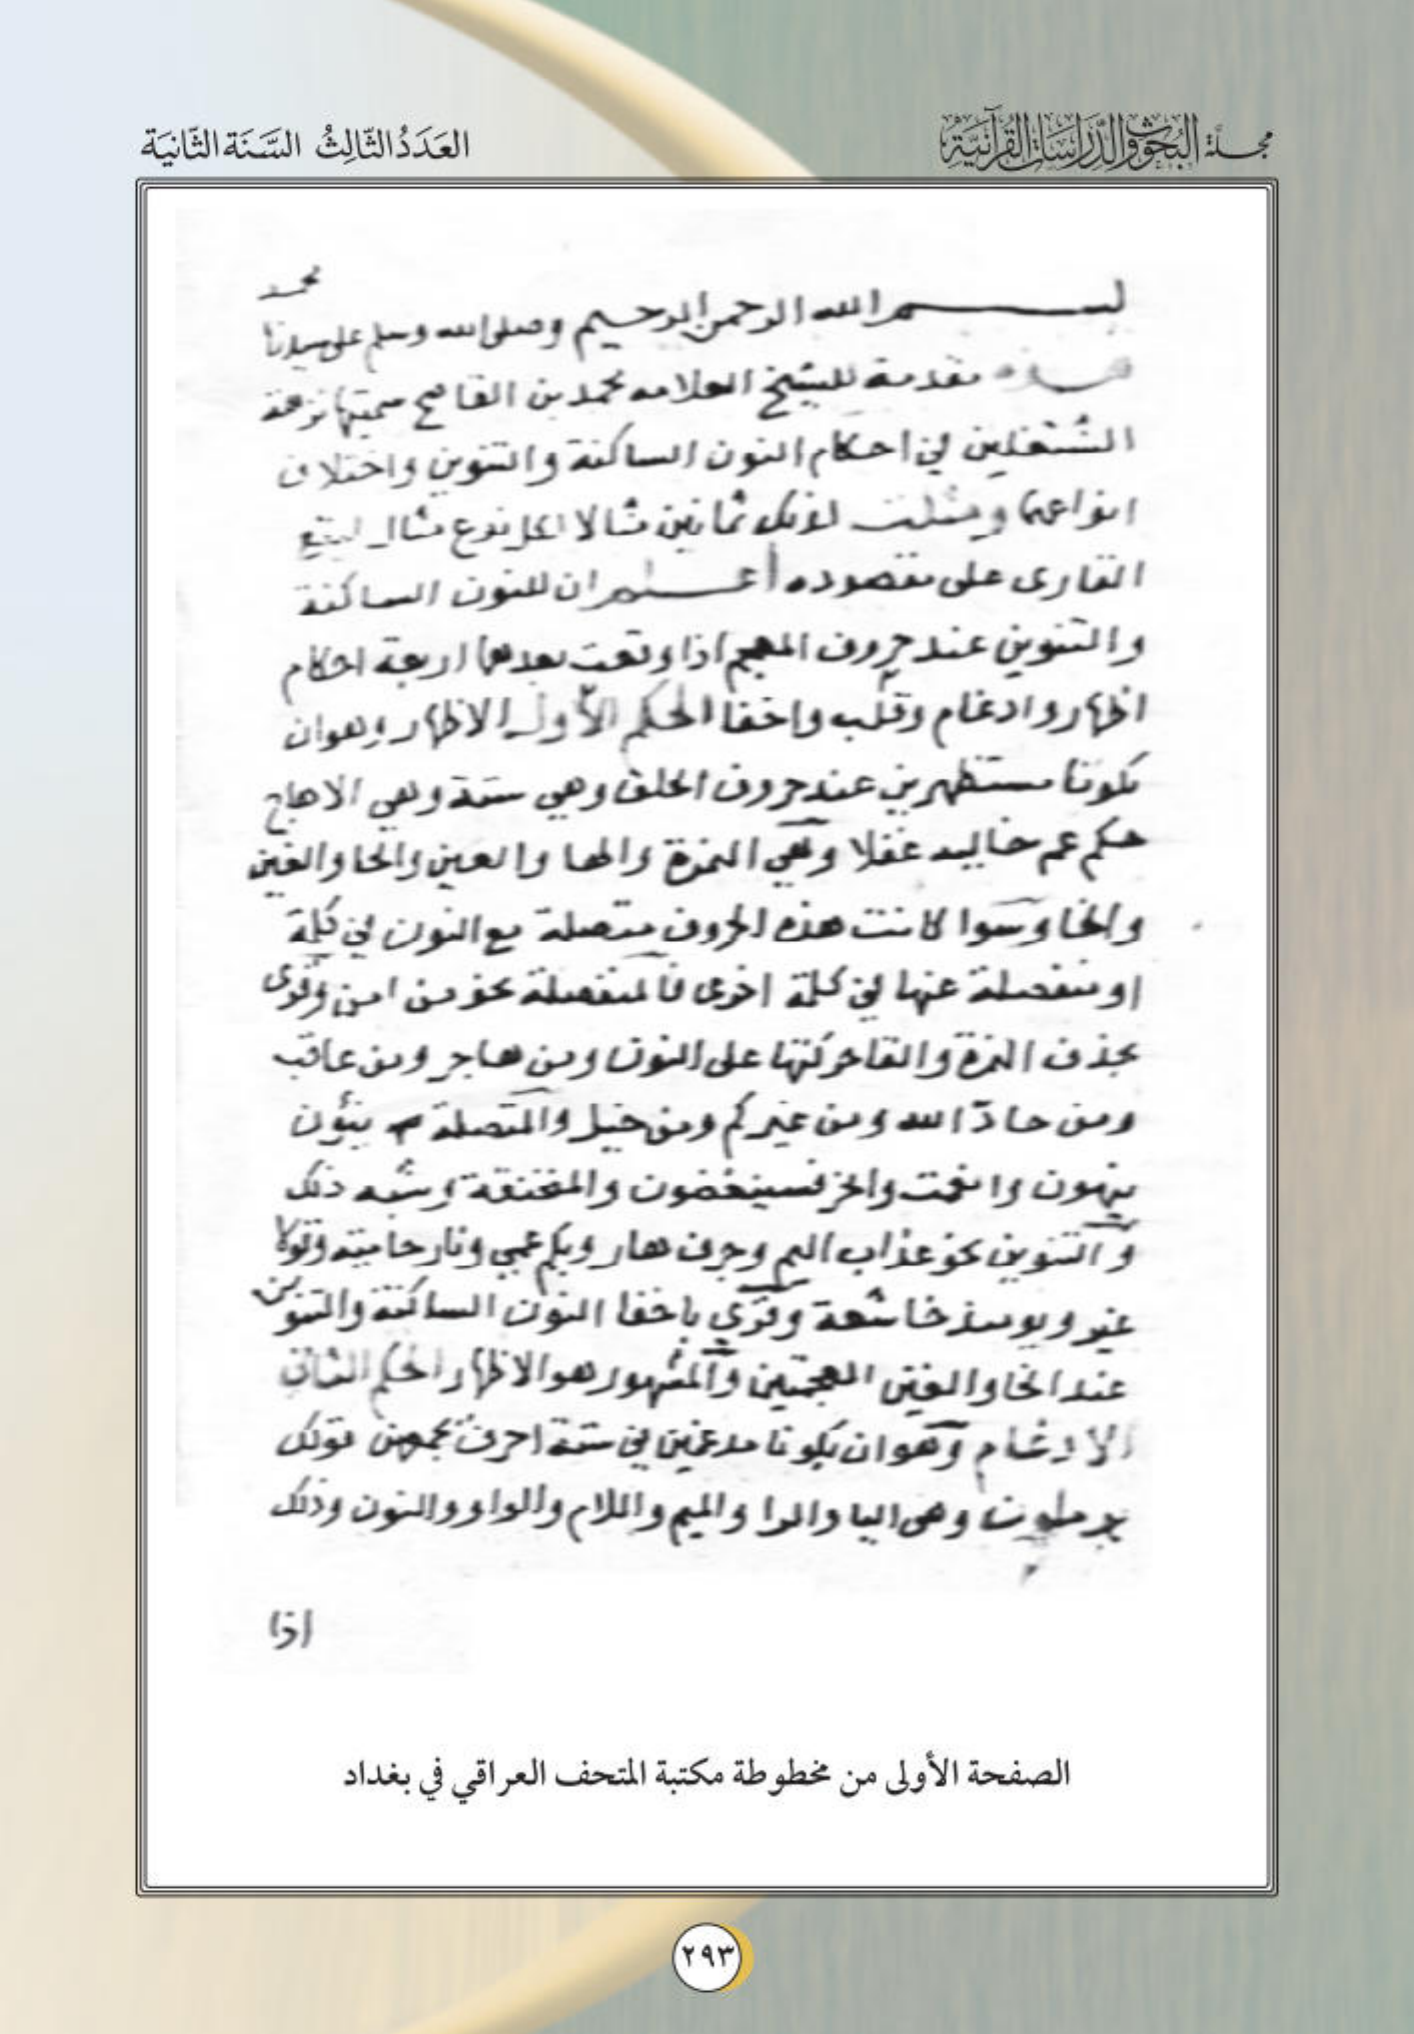 مجلة البحوث والدراسات القرآنية
العَدَدُ الثّالِثُ السَّنَة الثّانيَة
محمد
بسم الله الرحمن الرحيم وصلى الله وسلم على سيدنا
هذه مقدمة للشيخ العلامه محمد بن القاصح سميتها نزهة
المشتغلين في احكام النون الساكنة والتنوين واختلاف
انواعهما ومثلت لذلك ثمانين مثالا لكل نوع مثال ليتبع
القارى على مقصوده أعلم ان للنون الساكنة
والتنوين عند حروف المعجم اذا وقعت بعدهما اربعة احكام
اظهار وادغام وقلب واخفا الحكم الأول الاظهار وهو ان
تكونا مستظهرين عند حروف الحلق وهي ستة وهي الاهاج
حكم عم خاليه غفلا وهي الهمزة والها والعين والحا والغين
والخا وسوا كانت هذه الحروف متصلة مع النون في كلمة
او منفصلة عنها في كلمة اخرى فالمنفصلة نحو من امن وقرى
بحذف الهمزة والقا حركتها على النون ومن هاجر ومن عاقب
ومن حادّ الله ومن غيركم ومن خيل والمتصلة ينؤن
ينهون وانعمت وانحر فسينغضون والمنخنقة وشبه ذلك
والتنوين نحو عذاب اليم وجرف هار وبكم عمي ونار حاميته وقولا
غير ويومئذ خاشعة وقرى باخفا النون الساكنة والتنوين
عند الخا والغين المعجمتين والمشهور هو الاظهار الحكم الثاني
الادغام وهو ان يكونا مدغمين في ستة احرف يجمعهن قولك
يرملون وهي اليا والرا والميم واللام والواو والنون وذلك
اذا
الصفحة الأولى من مخطوطة مكتبة المتحف العراقي في بغداد
٢٩٣